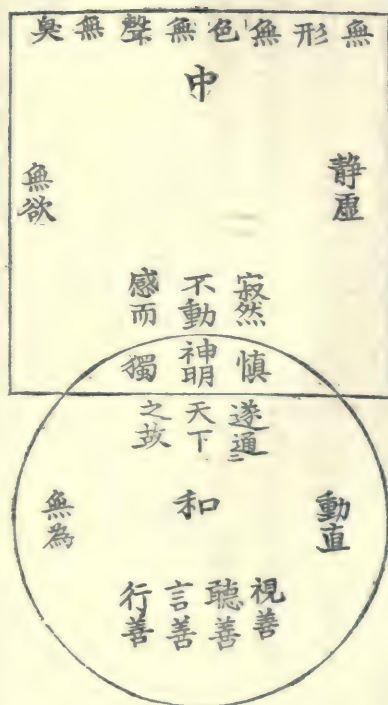 無形無色無聲無臭
中
静虛
無欲
寂然
不動
感而
慎
神明
獨
遂通
天下
之故
和
動直
無為
視善
聽善
言善
行善